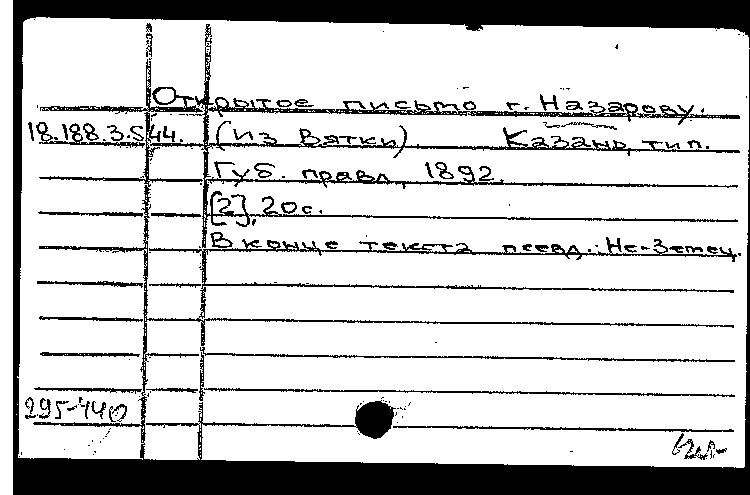 Открытое письмо г. Назарову.
18.188.3.544. (Из Вятки). Казань, тип.
Губ. правл., 1892.
[2], 20 с.
В конце текста псевд.: Не-Земец.
295-440